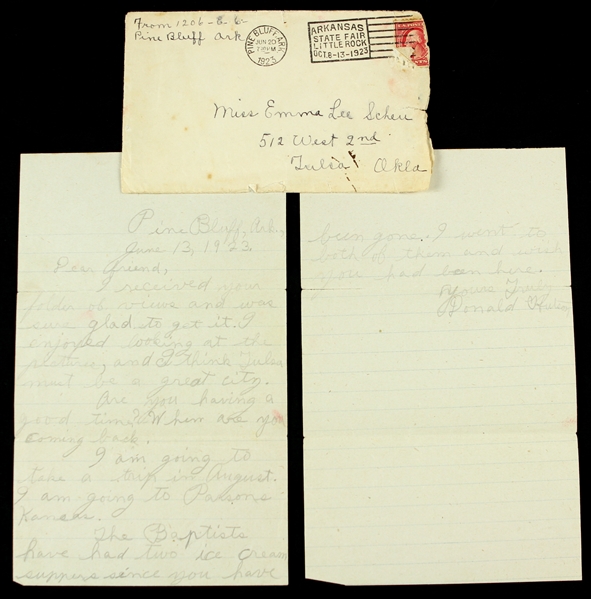 From 1206-E. 6-
Pine Bluff Ark
PINE BLUFF, ARK.
JUN 20
7 PM
1923
ARKANSAS
STATE FAIR
LITTLE ROCK
OCT. 8-13-1923
Miss Emma Lee Scheu
512 West 2nd
Tulsa, Okla
Pine Bluff, Ark.,
June 13, 1923.
Dear Friend,
I received your
folder of views and was
sure glad to get it. I
enjoyed looking at the
pictures, and I think Tulsa
must be a great city.
Are you having a
good time? When are you
coming back.
I am going to
take a trip in August.
I am going to Parsons
Kansas.
The Baptists
have had two ice cream
suppers since you have
been gone. I went to
both of them and wish
you had been here.
Yours Truly
Donald